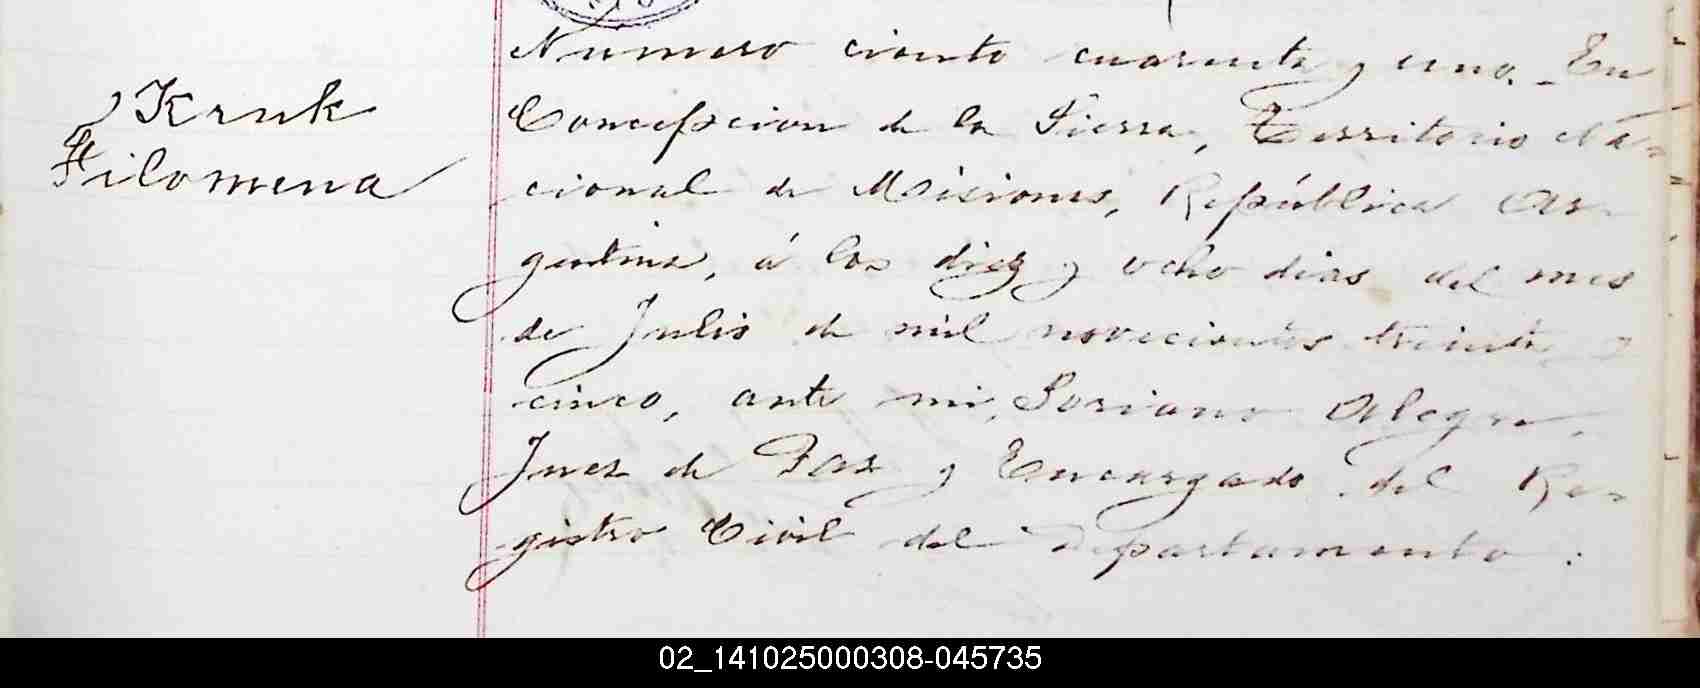 Kruk
Filomena
Numero ciento cuarenta y uno. En
Concepcion de la Sierra, Territorio Na-
cional de Misiones, República Ar-
gentina, á los diez y ocho dias del mes
de Julio de mil novecientos treinta y
cinco, ante mi, Soriano Alegre,
Juez de Paz y Encargado del Re-
gistro Civil del Departamento:
02_141025000308-045735